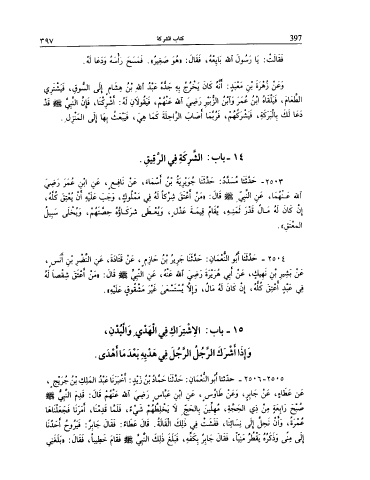 397 كتاب الشركة ٣٩٧
فَقَالَتْ: يَا رَسُولَ اللهِ بَايِعْهُ، فَقَالَ: «هُوَ صَغِيرٌ». فَمَسَحَ رَأْسَهُ وَدَعَا لَهُ.
وَعَنْ زُهْرَةَ بْنِ مَعْبَدٍ: أَنَّهُ كَانَ يَخْرُجُ بِهِ جَدُّهُ عَبْدُ اللهِ بْنُ هِشَامٍ إِلَى السُّوقِ، فَيَشْتَرِي
الطَّعَامَ، فَيَلْقَاهُ ابْنُ عُمَرَ وَابْنُ الزُّبَيْرِ رَضِيَ اللهُ عَنْهُمْ، فَيَقُولَانِ لَهُ: أَشْرِكْنَا، فَإِنَّ النَّبِيَّ ﷺ قَدْ
دَعَا لَكَ بِالْبَرَكَةِ، فَيُشْرِكُهُمْ، فَرُبَّمَا أَصَابَ الرَّاحِلَةَ كَمَا هِيَ، فَيَبْعَثُ بِهَا إِلَى الْمَنْزِلِ.
١٤ - باب: الشَّرِكَةِ فِي الرَّقِيقِ.
٢٥٠٣ - حَدَّثَنَا مُسَدَّدٌ: حَدَّثَنَا جُوَيْرِيَةُ بْنُ أَسْمَاءَ، عَنْ نَافِعٍ، عَنِ ابْنِ عُمَرَ رَضِيَ
اللهُ عَنْهُمَا، عَنِ النَّبِيِّ ﷺ قَالَ: «مَنْ أَعْتَقَ شِرْكًا لَهُ فِي مَمْلُوكٍ، وَجَبَ عَلَيْهِ أَنْ يُعْتِقَ كُلَّهُ،
إِنْ كَانَ لَهُ مَالٌ قَدْرَ ثَمَنِهِ، يُقَامُ قِيمَةَ عَدْلٍ، وَيُعْطَى شُرَكَاؤُهُ حِصَّتَهُمْ، وَيُخَلَّى سَبِيلُ
المعْتَقِ».
٢٥٠٤ - حَدَّثَنَا أَبُو النُّعْمَانِ: حَدَّثَنَا جَرِيرُ بْنُ حَازِمٍ، عَنْ قَتَادَةَ، عَنِ النَّضْرِ بْنِ أَنَسٍ،
عَنْ بَشِيرِ بْنِ نَهِيكٍ، عَنْ أَبِي هُرَيْرَةَ رَضِيَ اللهُ عَنْهُ، عَنِ النَّبِيِّ ﷺ قَالَ: «مَنْ أَعْتَقَ شِقْصًا لَهُ
فِي عَبْدٍ أُعْتِقَ كُلُّهُ، إِنْ كَانَ لَهُ مَالٌ، وَإِلَّا يُسْتَسْعَى غَيْرَ مَشْقُوقٍ عَلَيْهِ».
١٥ - باب: الِاشْتِرَاكِ فِي الْهَدْيِ وَالْبُدْنِ،
وَإِذَا أَشْرَكَ الرَّجُلُ الرَّجُلَ فِي هَدْيِهِ بَعْدَ مَا أَهْدَى.
٢٥٠٥-٢٥٠٦ - حدثنا أَبُو النُّعْمَانِ: حَدَّثَنَا حَمَّادُ بْنُ زَيْدٍ: أَخْبَرَنَا عَبْدُ الْمَلِكِ بْنُ جُرَيْجٍ،
عَنْ عَطَاءٍ، عَنْ جَابِرٍ، وَعَنْ طَاوُسٍ، عَنِ ابْنِ عَبَّاسٍ رَضِيَ اللهُ عَنْهُمْ قَالَ: قَدِمَ النَّبِيُّ ﷺ
صُبْحَ رَابِعَةٍ مِنْ ذِي الْحِجَّةِ، مُهِلِّينَ بِالْحَجِّ لَا يَخْلِطُهُمْ شَيْءٌ، فَلَمَّا قَدِمْنَا، أَمَرَنَا فَجَعَلْنَاهَا
عُمْرَةً، وَأَنْ نَحِلَّ إِلَى نِسَائِنَا، فَفَشَتْ فِي ذَلِكَ الْقَالَةُ. قَالَ عَطَاءٌ: فَقَالَ جَابِرٌ: فَيَرُوحُ أَحَدُنَا
إِلَى مِنًى وَذَكَرُهُ يَقْطُرُ مَنِيًّا، فَقَالَ جَابِرٌ بِكَفِّهِ، فَبَلَغَ ذَلِكَ النَّبِيَّ ﷺ فَقَامَ خَطِيبًا، فَقَالَ: «بَلَغَنِي